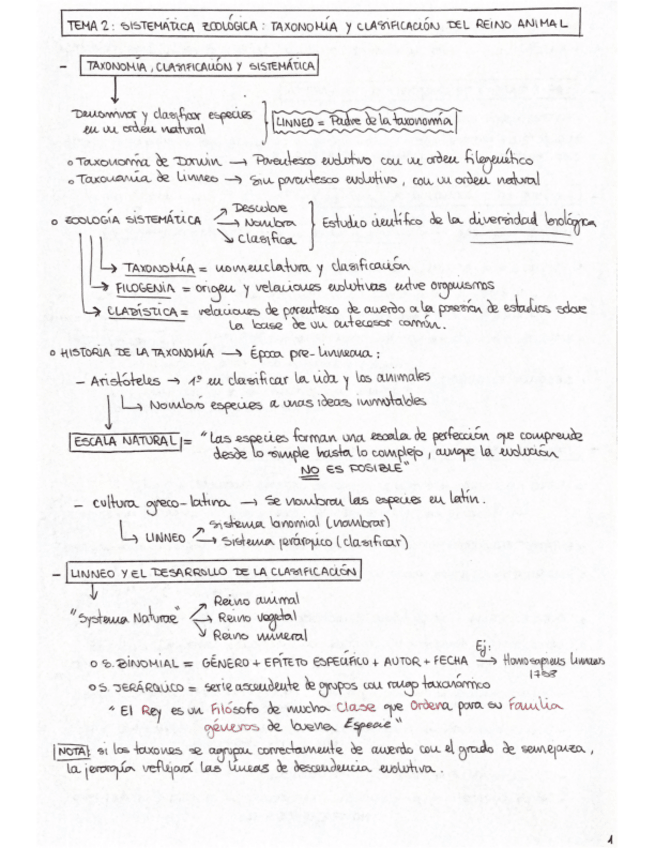 TEMA 2: SISTEMÁTICA ZOOLÓGICA: TAXONOMÍA Y CLASIFICACIÓN DEL REINO ANIMAL
- TAXONOMÍA, CLASIFICACIÓN Y SISTEMÁTICA
Denominar y clasificar especies
en un orden natural
LINNEO = Padre de la taxonomía
o Taxonomía de Darwin → Parentesco evolutivo con un orden filogenético
o Taxonomía de Linneo → Sin parentesco evolutivo, con un orden natural
o ZOOLOGÍA SISTEMÁTICA
Descubre
Nombra
Clasifica
Estudio científico de la diversidad biológica
TAXONOMÍA = nomenclatura y clasificación
FILOGENIA = origen y relaciones evolutivas entre organismos
CLADÍSTICA = relaciones de parentesco de acuerdo a la posesión de estudios sobre
la base de un antecesor común.
o HISTORIA DE LA TAXONOMÍA → Época pre-linneana:
- Aristóteles → 1º en clasificar la vida y los animales
Nombró especies a unas ideas inmutables
ESCALA NATURAL = "Las especies forman una escala de perfección que comprende
desde lo simple hasta lo complejo, aunque la evolución
NO ES POSIBLE"
- Cultura greco-latina → Se nombran las especies en latín.
LINNEO
Sistema binomial (nombrar)
Sistema jerárquico (clasificar)
- LINNEO Y EL DESARROLLO DE LA CLASIFICACIÓN
"Systema Naturae"
Reino animal
Reino vegetal
Reino mineral
o S. BINOMIAL = GÉNERO + EPÍTETO ESPECÍFICO + AUTOR + FECHA → Ej: Homo sapiens Linneus
1758
o S. JERÁRQUICO = serie ascendente de grupos con rango taxonómico
"El Rey es un Filósofo de mucha Clase que Ordena para su Familia
géneros de buena Especie"
NOTA: si los taxones se agrupan correctamente de acuerdo con el grado de semejanza,
la jerarquía reflejará las líneas de descendencia evolutiva.
1